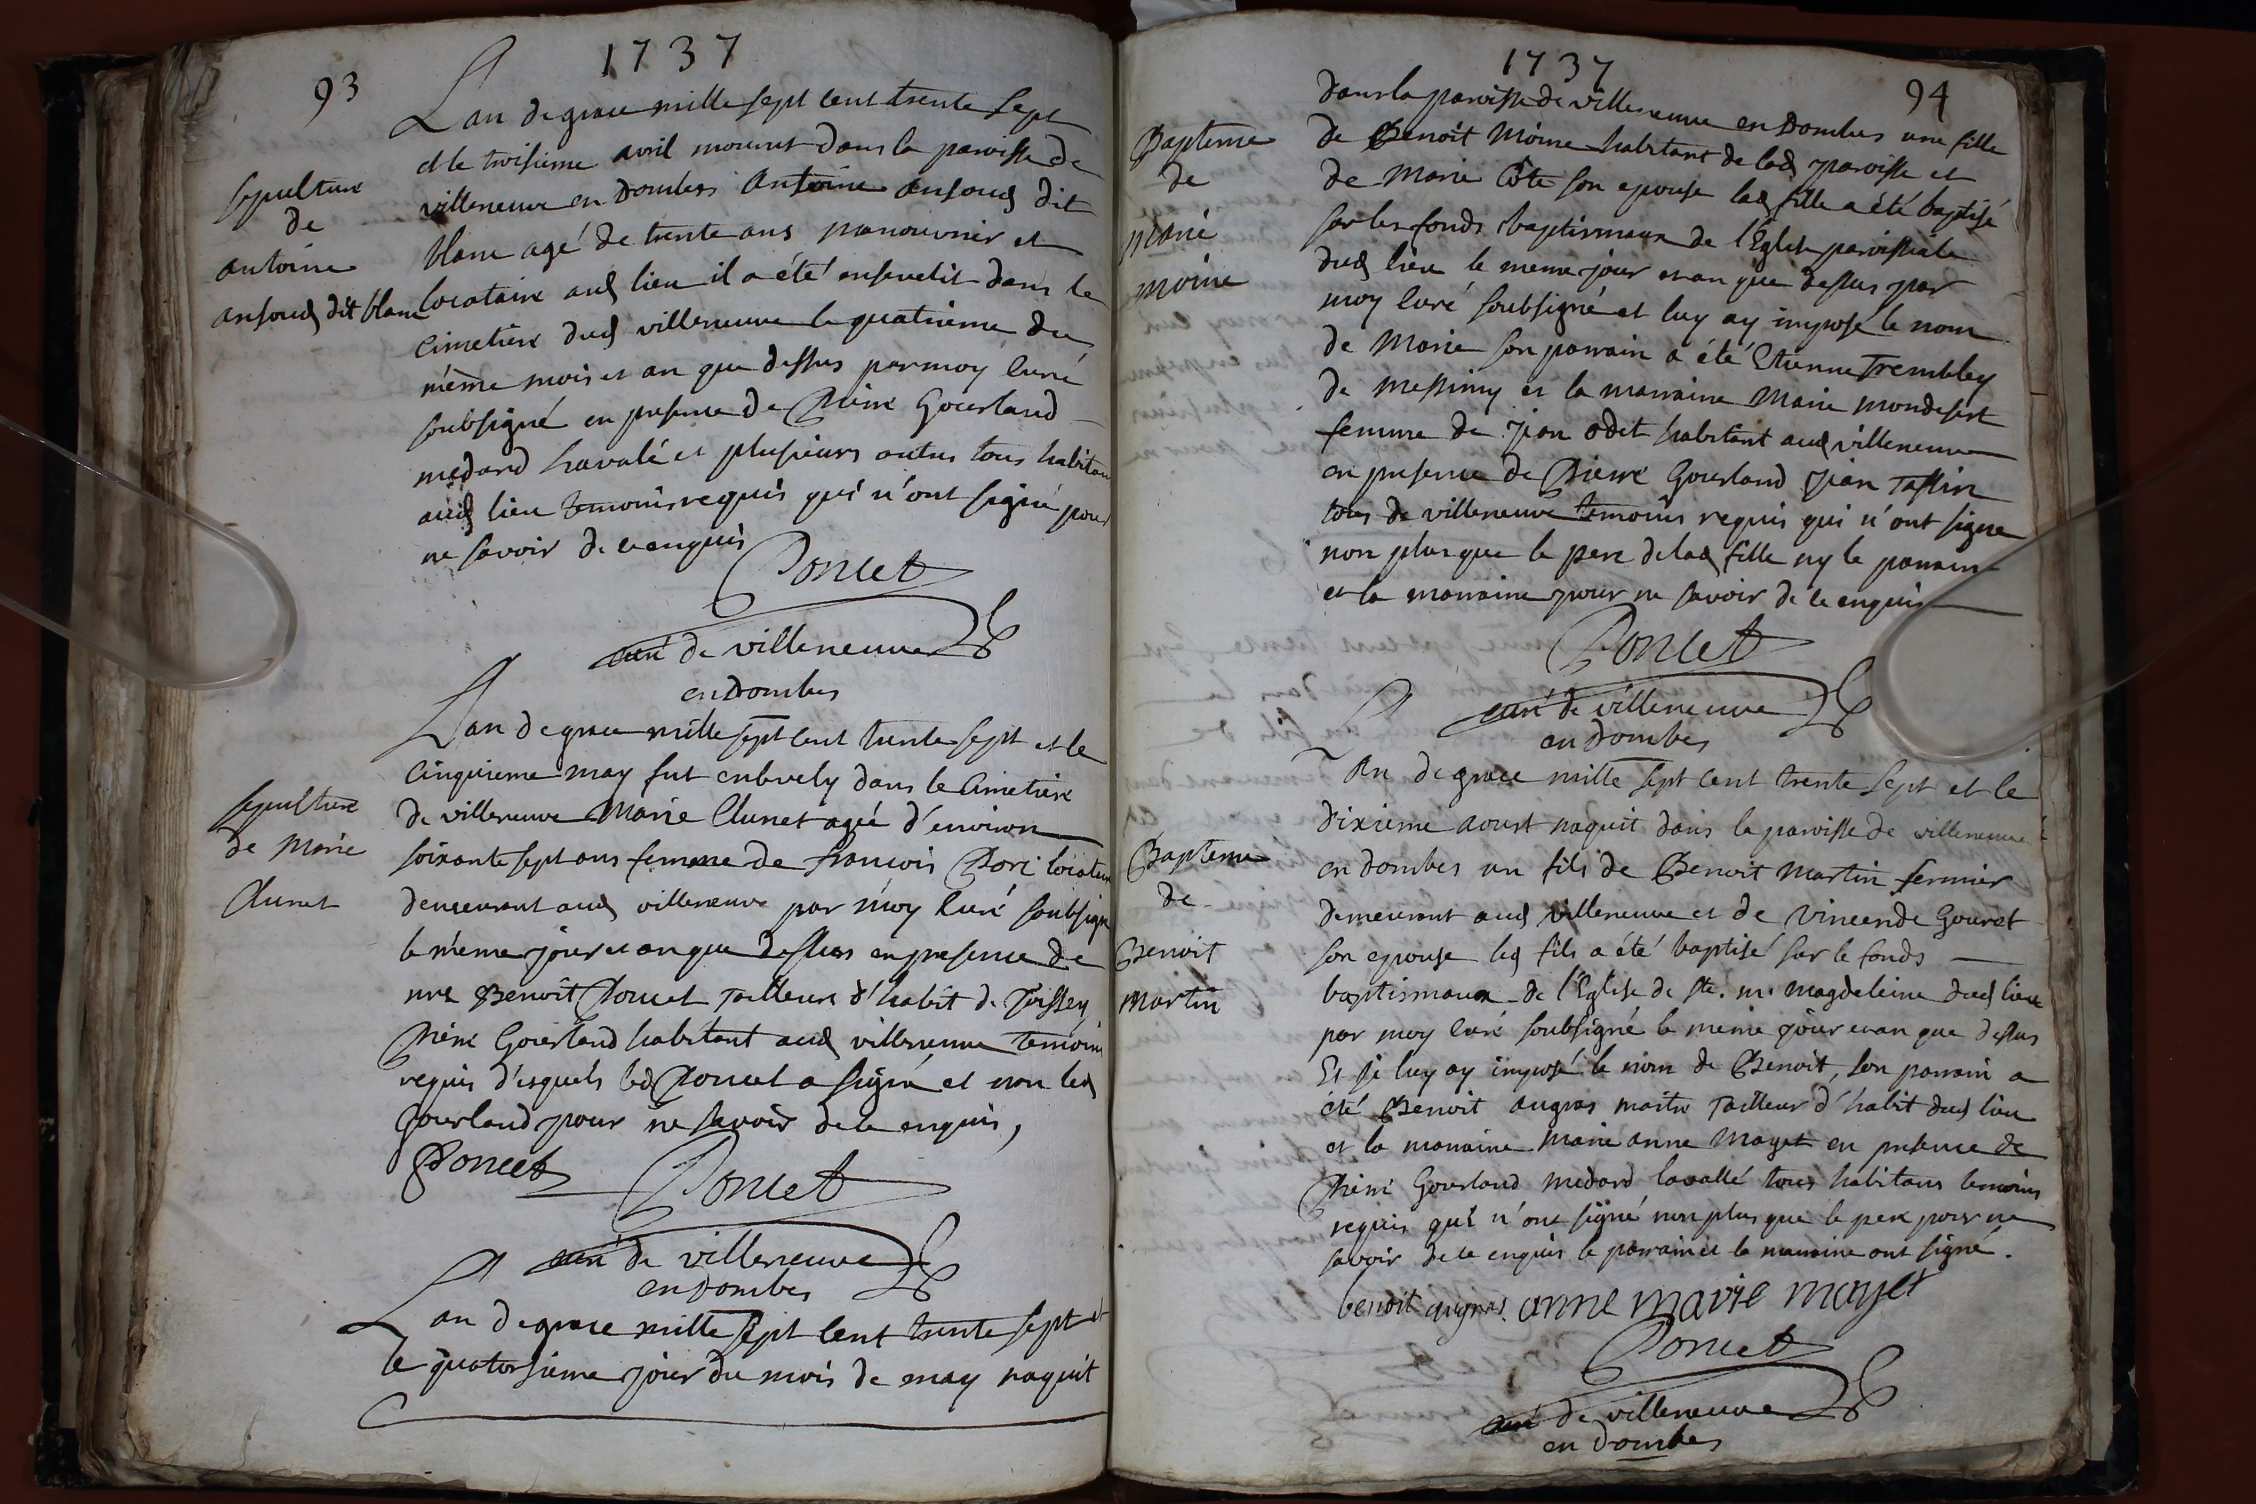 1737
93
Lan de grace mille sept cent trente sept
et le troisieme avril mourut dans la paroisse de
villeneuve en Dombes Antoine ansoud dit
blanc agé de trente ans manouvrier et
locataire aud lieu il a été ensevelit dans le
cimetiere dud villeneuve le quatrieme du
même mois et an que dessus par moy curé
soubsigné en presence de Pierre Gourland
medard lavalé et plusieurs autres tous habitans
aud lieu temoins requis qui n'ont signé pour
ne savoir de ce enquis
Poncet
curé de villeneuve
en Dombes
sepulture
de
antoine
ansoud dit blanc
Lan de grace mille sept cent trente sept et le
cinquieme may fut ensevely dans le cimetiere
de villeneuve Marie Clunet agée d'environ
soixante sept ans femme de francois Pori locataire
demeurant aud villeneuve par moy curé soubsigné
le même jour et an que dessus en presence de
mre Benoit Poncet Tailleur d'habit de Toissey
Pierre Gourland habitant aud villeneuve temoins
requis d'esquels led Poncet a signé et non led
Gourland pour ne savoir de ce enquis,
Poncet Poncet
curé de villeneuve
en Dombes
sepulture
de Marie
Clunet
Lan de grace mille sept cent trente sept et
le quatorsieme jour du mois de may naquit
1737
94
dans la paroisse de villeneuve en Dombes une fille
de Benoit Moine habitant de lad paroisse et
de Marie Côte son epouse lad fille a été baptisé
sur les fonds baptismaux de l'Eglise paroissiale
dud lieu le meme jour et an que dessus par
moy curé soubsigné et luy ay imposé le nom
de Marie son parrain a été Etienne Trembley
de messimy et la marraine Marie mondesert
femme de jean odet habitant aud villeneuve
en presence de Pierre Gourland Jean Tassin
tous de villeneuve temoins requis qui n'ont signe
non plus que le pere de lad fille ny le parrain
et la marraine pour ne savoir de ce enquis
Poncet
curé de villeneuve
en Dombes
Bapteme
de
Marie
moine
L'An de grace mille sept cent trente sept et le
dixieme aoust naquit dans la paroisse de villeneuve
en dombes un fils de Benoit Martin fermier
demeurant aud villeneuve et de vincende Gouret
son epouse led fils a été baptisé sur le fonds
baptismaux de l'Eglise de ste. m. Magdeleine dud lieu
par moy curé soubsigné le meme jour et an que dessus
Et je luy ay imposé le nom de Benoit, son parrain a
été Benoit augras maitre Tailleur d'habit dud lieu
et la marraine Marie anne Mayet en presence de
Pierre Gourland medard lavallé tous habitans temoins
requis qui n'ont signé non plus que le pere pour ne
savoir de ce enquis le parrain et la marraine ont signé.
benoit augras. anne marie mayet
Poncet
curé de villeneuve
en Dombes
Bapteme
de
Benoit
Martin